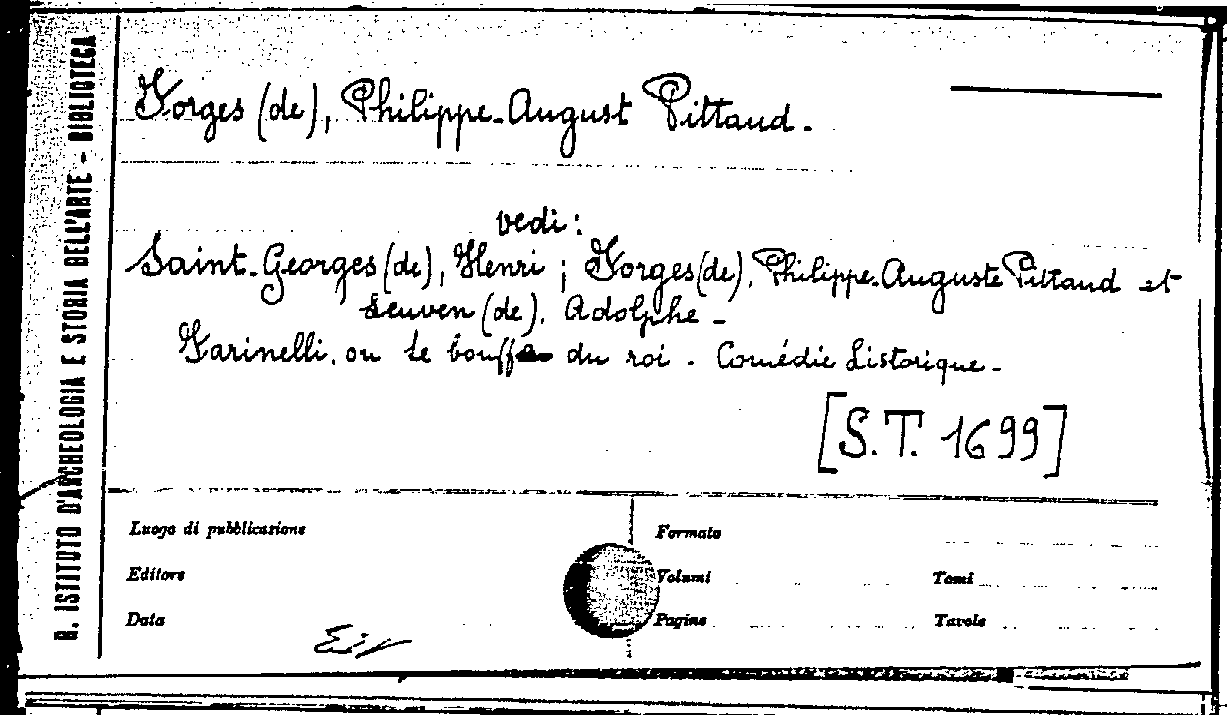 R. ISTITUTO D'ARCHEOLOGIA E STORIA DELL'ARTE - BIBLIOTECA
Forges (de), Philippe-August Pittaud.
vedi:
Saint-Georges (de), Henri ; Forges (de), Philippe-Auguste Pittaud et
Leuven (de), Adolphe -
Farinelli, ou le bouffe du roi - Comédie historique -
[S.T. 1699]
Luogo di pubblicazione
Formato
Editore
Volumi
Tomi
Data
Pagine
Tavole